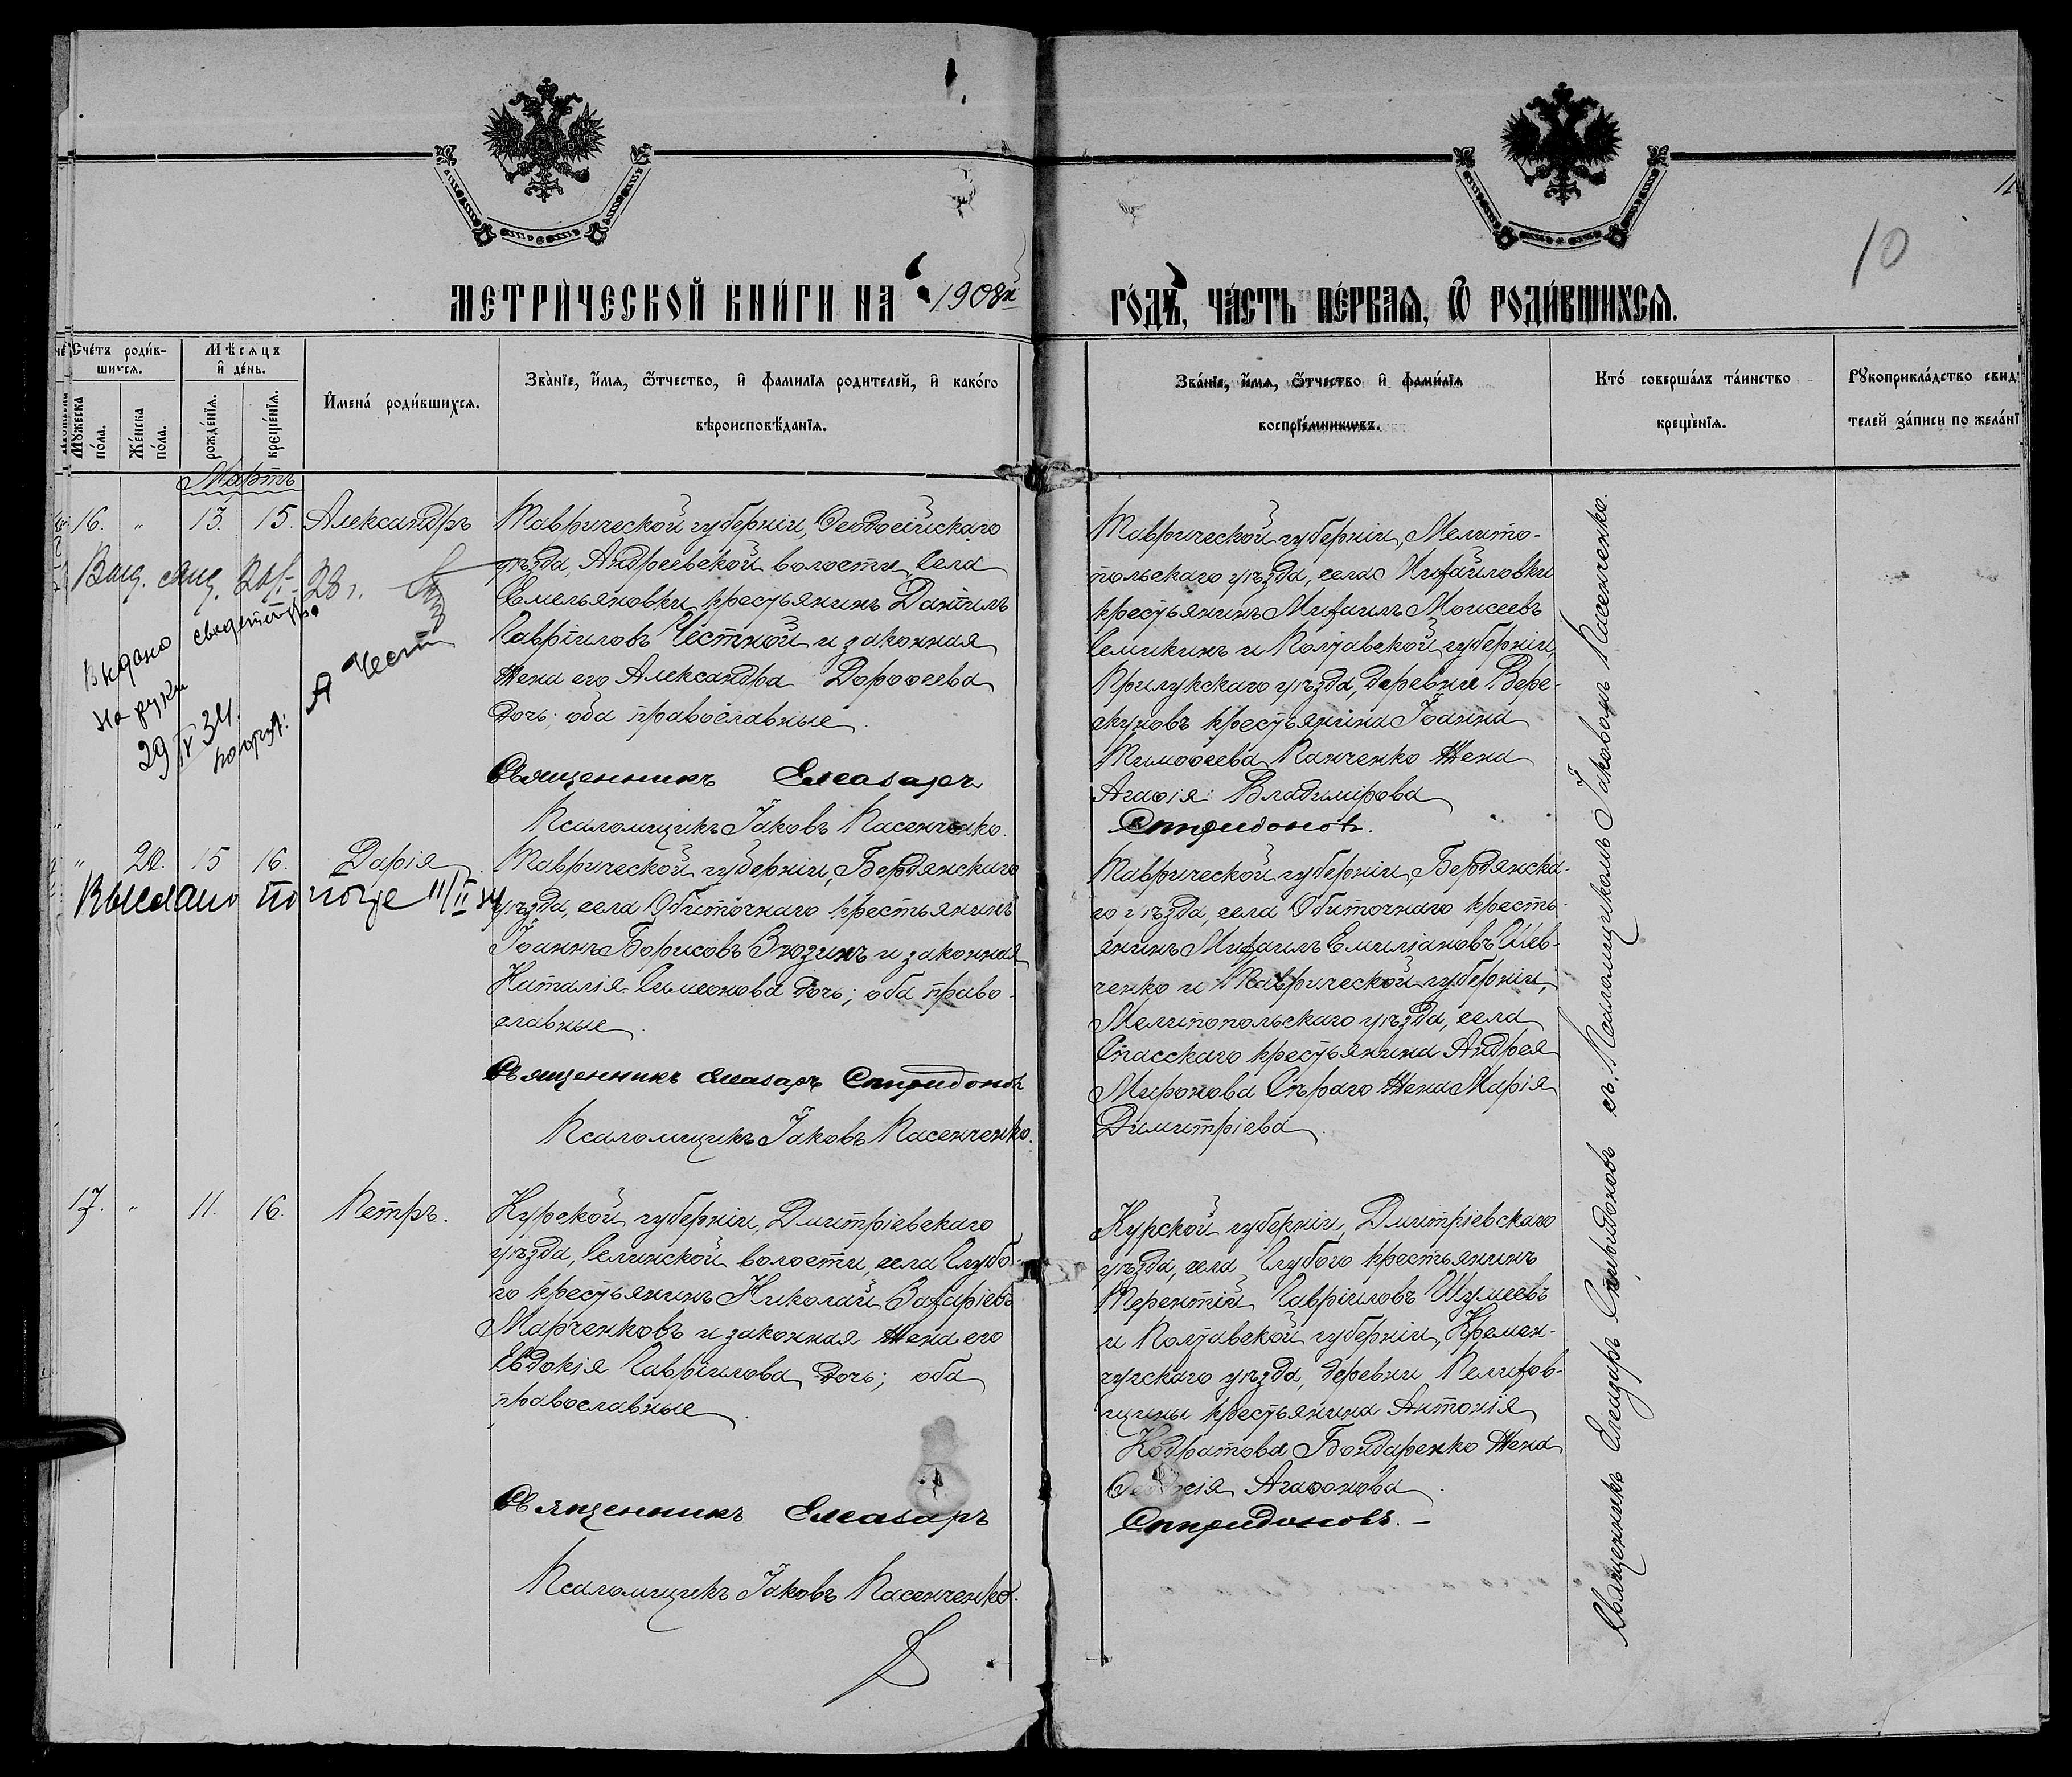 МЕТРИ́ЧЕСКОЙ КНИ́ГИ НА 1908й ГО́ДЪ, ЧА́СТЬ ПЕ́РВАѦ, Ѽ РОДИ́ВШИХСѦ.
10
Сче́тъ роди́в-
шихся.
Му́жеска по́ла.
Же́нска по́ла.
Мѣ́сяцъ и҆ де́нь.
рожде́нїѧ.
креще́нїѧ.
И҆мена́ роди́вшихся.
Зва́нїе, и҆́мѧ, ѻ҆́тчество, и҆ фамилїѧ родителей, и҆ како́гѡ
вѣроисповѣ́данїѧ.
Зва́нїе, и҆́мѧ, ѻ҆́тчество и҆ фами́лїѧ
воспрїе́мникѡвъ.
Кто́ соверша́лъ та́инство
креще́нїѧ.
Рꙋкоприкла́дство свид
телей за́писи по жела́нї
Мартъ
16. " 13. 15. Александръ
Таврической губерніи, Ѳеодосійскаго
уѣзда, Андреевской волости, села
Емельяновки крестьянинъ Даніилъ
Гавріиловъ Честной и законная
жена его Александра Дороѳеева
дочь; оба православные.
Священникъ Елеазаръ
Псаломщикъ Іаковъ Касенченко.
28 г.
Выдано свидетельство
на руки
29 IV 34
А Честн
Таврической губерніи, Мелито-
польскаго уѣзда, села Михайловки
крестьянинъ Михаилъ Моисеевъ
Семикинъ и Полтавской губерніи,
Прилукскаго уѣзда, деревни Вере-
скуновъ крестьянина Іоанна
Тимоѳеева Панченко жена
Агаѳія Владимірова
Спиридоновъ.
" 20. 15 16. Дарія
Выслано по почте 11/II 34
Таврической губерніи, Бердянскаго
уѣзда, села Обиточнаго крестьянинъ
Іоаннъ Борисовъ Вюзинъ и законная
Наталія Симеонова дочь; оба право-
славные.
Священникъ Елеазаръ Спиридоновъ
Псаломщикъ Іаковъ Касенченко.
Таврической губерніи, Бердянска-
го уѣзда, села Обиточнаго кресть-
янинъ Михаилъ Емиліановъ Шев-
ченко и Таврической губерніи,
Мелитопольскаго уѣзда, села
Спасскаго крестьянина Андрея
Миронова Сѣраго жена Марія
Димитріева.
17. " 11. 16. Петръ.
Курской губерніи, Дмитріевскаго
уѣзда, Селинской волости, села Глубо-
го крестьянинъ Николай Захаріевъ
Марченковъ и законная жена его
Евдокія Гавріилова дочь; оба
православные.
Священникъ Елеазаръ
Псаломщикъ Іаковъ Касенченко.
Курской губерніи, Дмитріевскаго
уѣзда, села Глубого крестьянинъ
Терентій Гавріиловъ Шумеевъ
и Полтавской губерніи, Кремен-
чугскаго уѣзда, деревни Пелихов-
щины крестьянина Антонія
Кодратова Бондаренко жена
Агаѳонова.
Спиридоновъ. –
Священникъ Елеазаръ Спиридоновъ съ Псаломщикомъ Іаковомъ Касенченко.